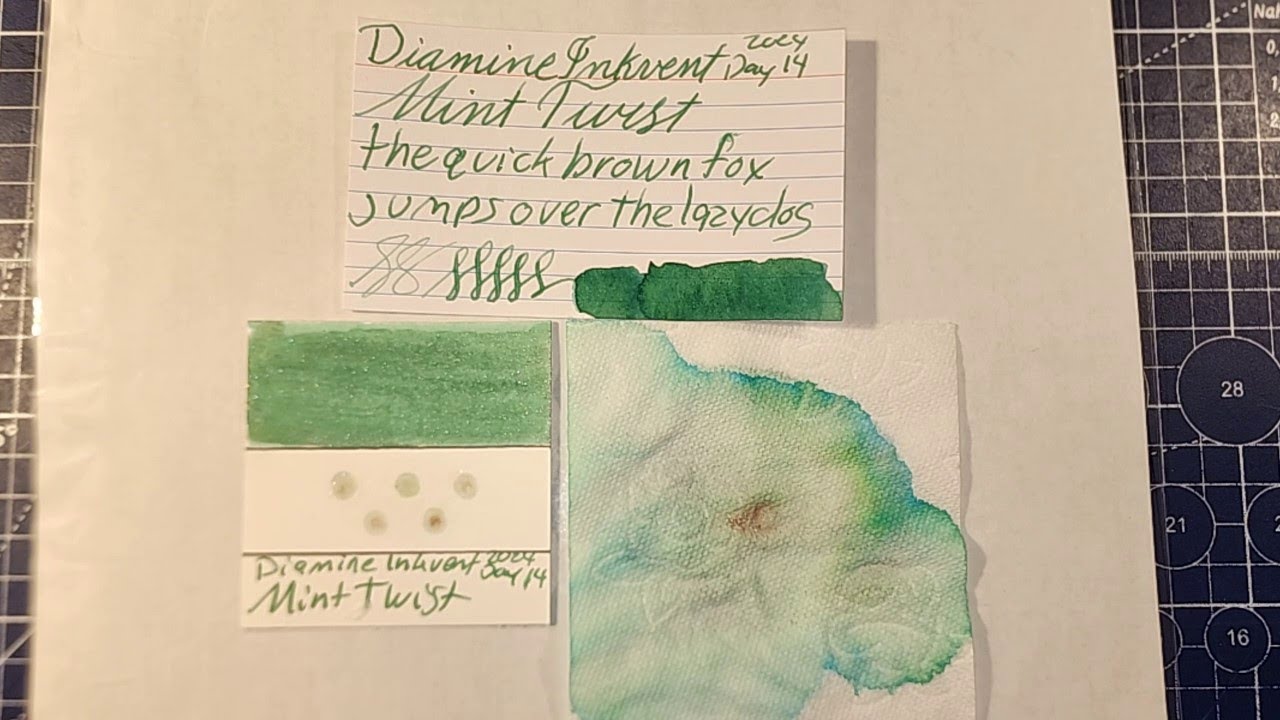 Diamine Inkvent 2024
Day 14
Mint Twist
the quick brown fox
jumps over the lazy dog
Diamine Inkvent 2024
Day 14
Mint Twist
28
21
16